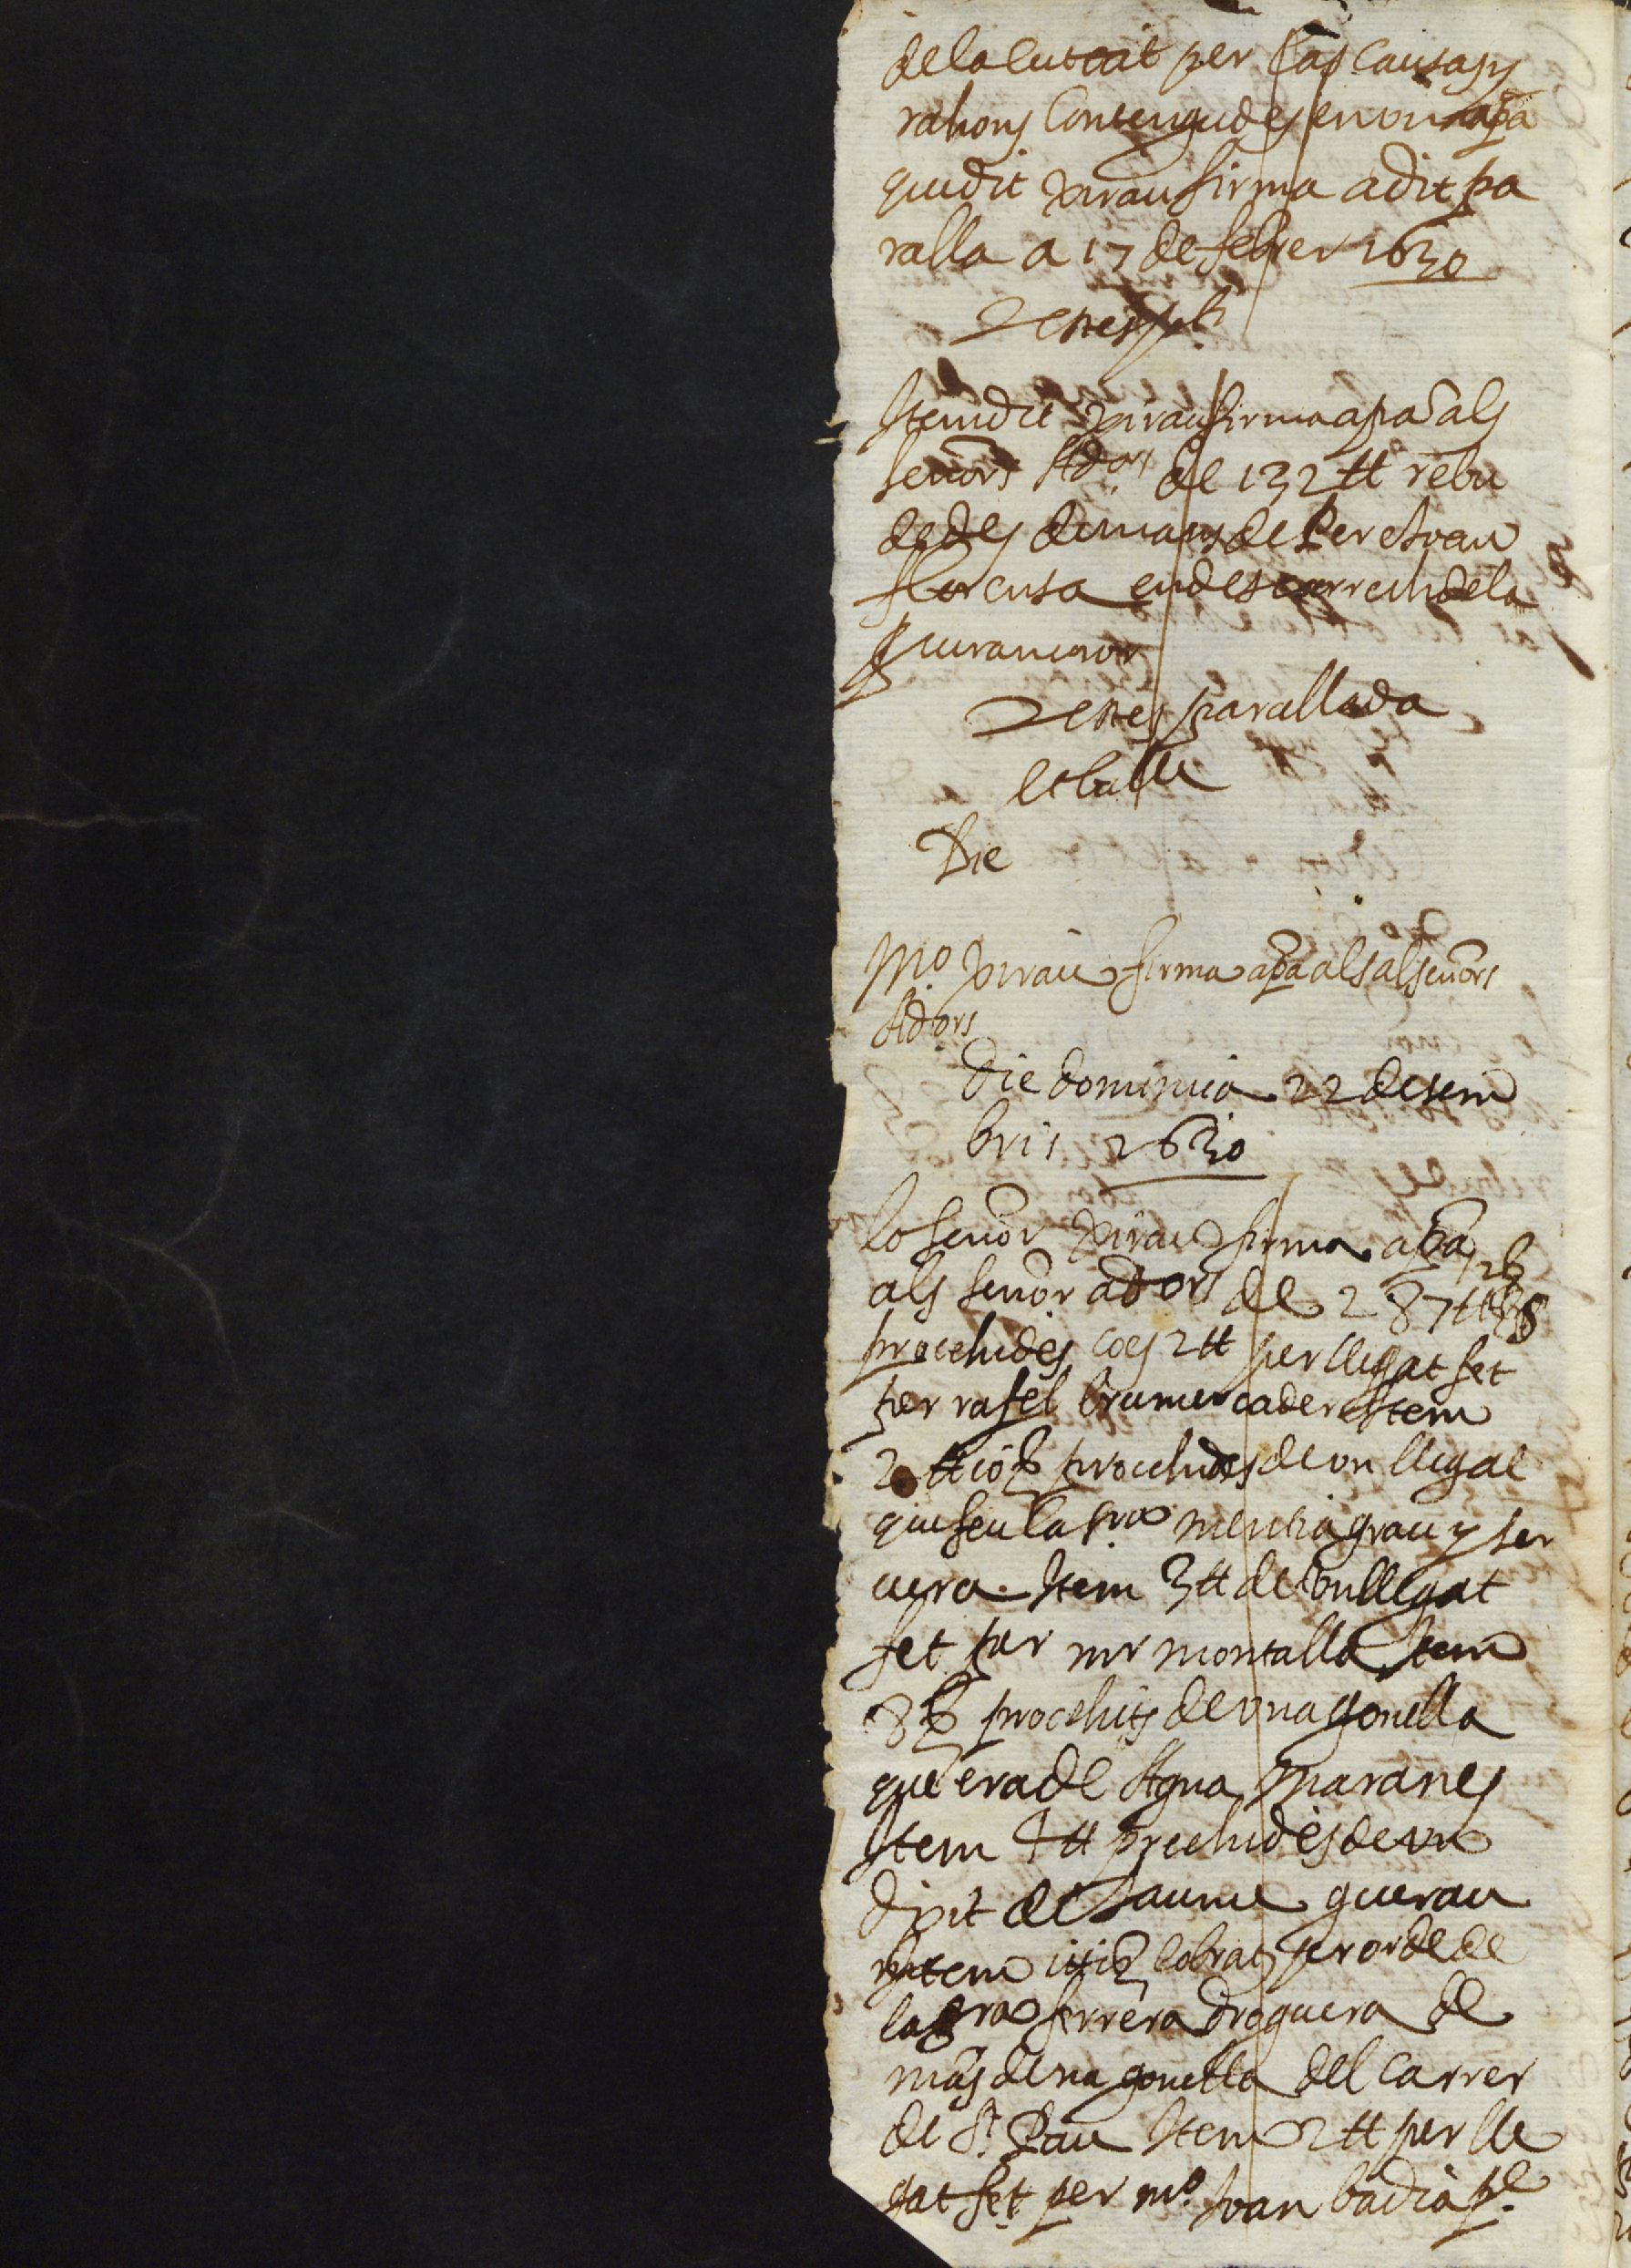 de la ciutat per las causas y
rahons contengudes en una apᵃ
que dit Pirau firma a dit pa
ralla a 17 de febrer 1630
Testes pᵗˢ
Item dit Pirau firma apᵃ als
señors Adᵒʳˢ de 132 ₶ rebu
dedes de mans de Pere Joan
florensa en descarrech de la
Testes parallada
et batlle
Die
Mᵒ Pirau firma apᵃ als alseñors
Adors
die dominica 22 desem
bris 1630
lo señor Pirau firma apᵃ
als señor adors de 287 ₶
procehides coes 2 ₶ per llegat fet
per rafel bru mercader Item
2 ₶ 10 ß procehides de un llegat
que feu la sʳᵃ mentia grau y ser
vera. Item 3 ₶ de un llegat
fet per mr montalla Item
8 ß procehits de una gonella
que era de Agna Maranes
Item ₶ procehides de un
dipit de Jaume guerau
Item cobrats per orde de
la sʳᵃ ferrera droguera de
mas de na gonella del carrer
de Sᵗ Pau Item 2 ₶ per lle
gat fet per mᵒ Joan badia pʳᵉ